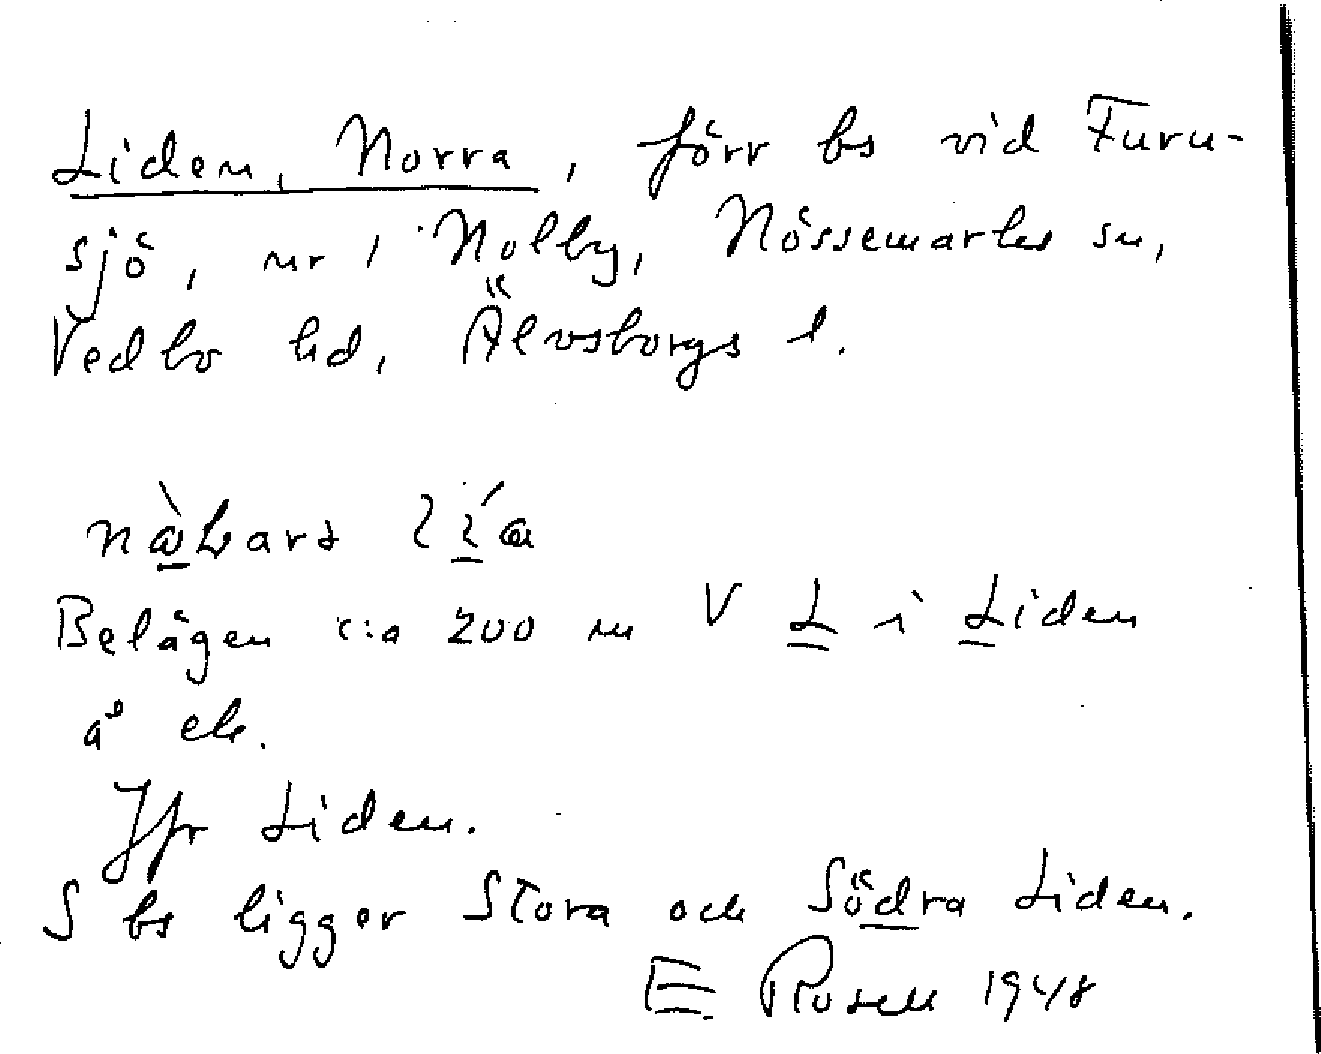 Liden, Norra, förr bs vid Furu-
sjö, nr 1 Nolby, Nössemarks sn,
Vedbo hd, Älvsborgs l.
Belägen c:a 200 m V L i Liden
å ek.
Jfr Liden.
S bs ligger Stora och Södra Liden.
E Rosell 1948